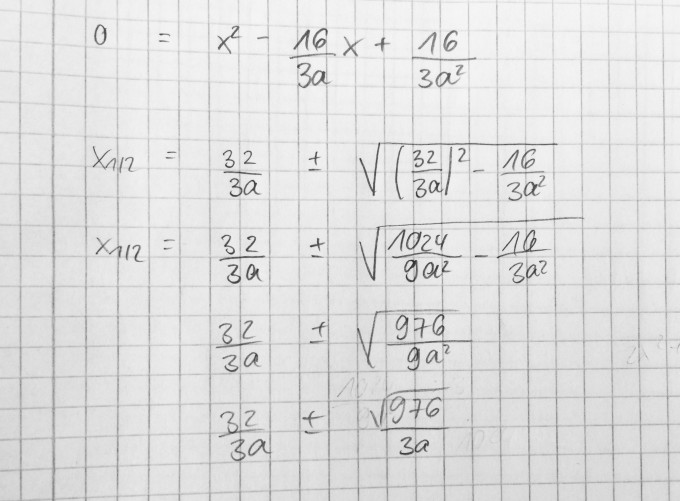 0 = x² - 16/3a x + 16/3a²
x1/2 = 32/3a ± √(32/3a)² - 16/3a²
x1/2 = 32/3a ± √1024/9a² - 16/3a²
32/3a ± √976/9a²
32/3a ± √976/3a